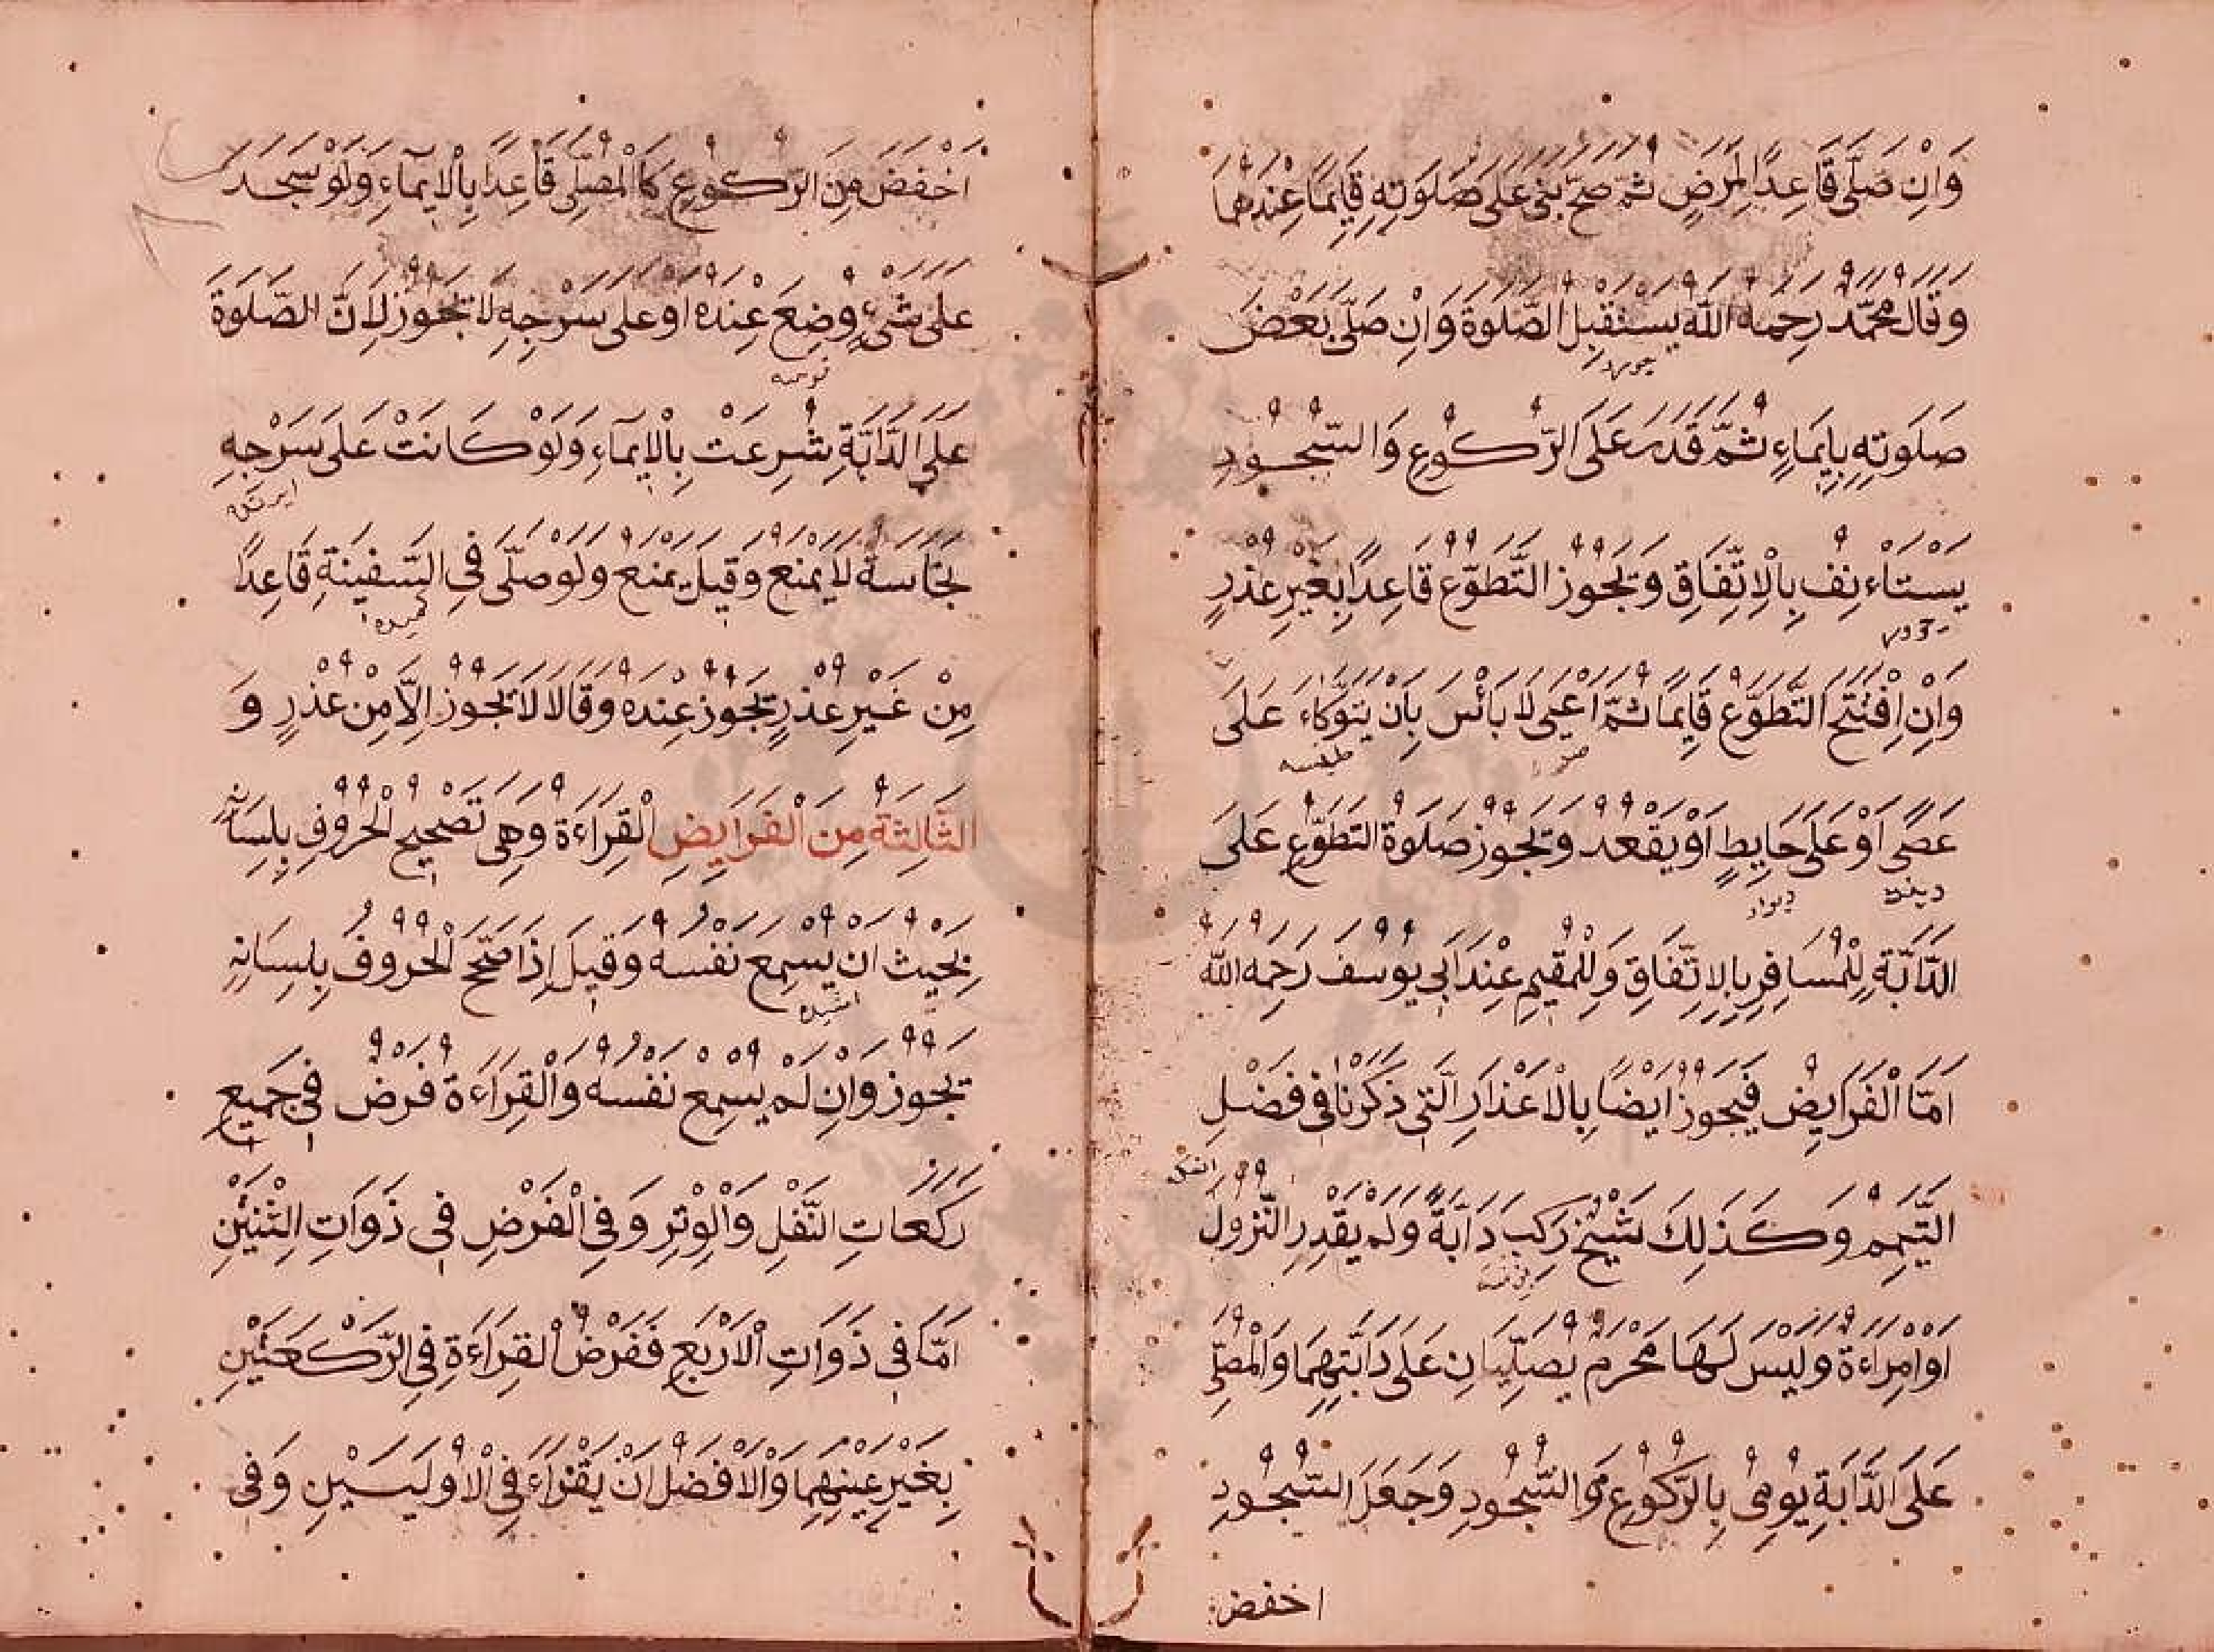 وَاِنْ صَلَّى قَاعِدًا لِمَرَضٍ ثُمَّ صَحَّ بَنٰى عَلٰى صَلٰوتِهِ قَايِمًا عِنْدَهُمَا
وَقَالَ مُحَمَّدٌ رَحِمَهُ اللّٰهُ يَسْتَقْبِلُ الصَّلٰوةَ وَاِنْ صَلَّى بَعْضَ
صَلَوتِهِ بِاِيمَاءٍ ثُمَّ قَدَرَ عَلَى الرُّكُوعِ وَالسُّجُودِ
يَسْتَاءنِفُ بِالْاِتِّفَاقِ وَيَجُوزُ التَّطَوُّعُ قَاعِدًا بِغَيْرِ عُذْرٍ
وَاِنِ افْتَتَحَ التَّطَوُّعَ قَايِمًا ثُمَّ اَعْيٰى لَا بَائْسَ بِاَنْ يَتَوَكَّاءَ عَلٰى
عَصًى اَوْ عَلٰى حَايِطٍ اَوْ يَقْعُدُ وَيَجُوزُ صَلٰوةُ التَّطَوُّعِ عَلَى
دیوار
الدَّابَّةِ لِلْمُسَافِرِ بِالْاِتِّفَاقِ وَلِلْمُقِيمِ عِنْدَ اَبِى يُوسُفَ رَحِمَهُ اللّٰهُ
اَمَّا الْفَرَايِضُ فَيَجُوزُ اَيْضًا بِالْاَعْذَارِ الَّتِى ذَكَرْنَا فِى فَصْلِ
التَّيَمُّمِ وَكَذٰلِكَ شَيْخٌ رَكِبَ دَابَّةً وَلَمْ يَقْدِرِ النُّزُولَ
اَوِ امْرَاءَةٌ وَلَيْسَ لَهَا مَحْرَمٌ يُصَلِّيَانِ عَلٰى دَابَّتِهِمَا وَالْمُصَلِّى
عَلَى الدَّابَةِ يُومِىُ بِالرُّكُوعِ وَالسُّجُودِ وَجَعَلَ السُّجُودِ
اخفض
اَخْفَضَ مِنَ الرُّكُوعِ كَالْمُصَلِّى قَاعِدًا بِالْاِيمَاءِ وَلَوْ سَجَدَ
عَلٰى شَىْءٍ وُضِعَ عِنْدَهُ اَوْ عَلٰى سَرْجِهِ لَا تَجُوزُ لِاَنَّ الصَّلٰوةَ
عَلَى الدَّابَّةِ شُرِعَتْ بِالْاِيمَاءِ وَلَوْ كَانَتْ عَلٰى سَرْجِهِ
نَجَاسَةٌ لَا يَمْنَعُ وَقِيلَ يَمْنَعُ وَلَوْ صَلَّى فِى السَّفِينَةِ قَاعِدًا
مِنْ غَيْرِ عُذْرٍ تَجُوزُ عِنْدَهُ وَقَالَا لَا تَجُوزُ اِلَّا مِنْ عُذْرٍ وَ
الثَّالِثَةُ مِنَ الْفَرَايِضِ الْقِرَاءَةُ وَهِىَ تَصْحِيحُ الْحُرُوفِ بِلِسَانِهِ
بِحَيْثُ اَنْ يُسْمِعَ نَفْسَهُ وَقِيلَ اِذَا صَحَّحَ الْحُرُوفَ بِلِسَانِهِ
تَجُوزُ وَاِنْ لَمْ يُسْمِعْ نَفْسَهُ وَالْقِرَاءَةُ فَرْضٌ فِى جَمِيعِ
رَكَعَاتِ النَّفْلِ وَالْوِتْرِ وَفِى الْفَرْضِ فِى ذَوَاتِ الثْنَيْنِ
اَمَّا فِى ذَوَاتِ الْاَرْبَعِ فَفَرْضُ الْقِرَاءَةِ فِى الرَّكْعَتَيْنِ
بِغَيْرِ عَيْنِهِمَا وَالْاَفْضَلُ اَنْ يَقْرَاءَ فِى الْاُولَيَيْنِ وَفِى